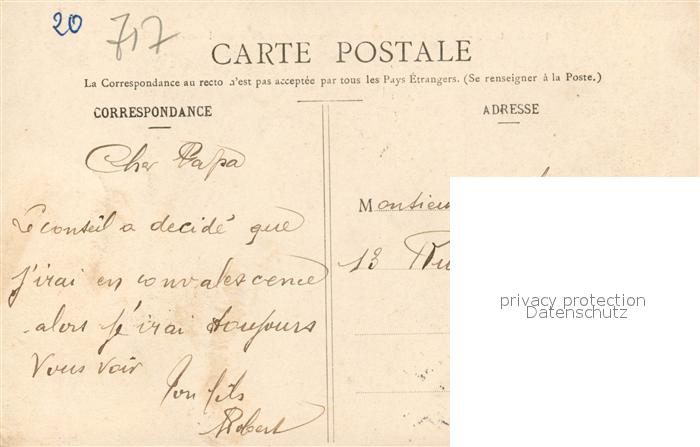 20
717
CARTE POSTALE
La Correspondance au recto n'est pas acceptée par tous les Pays Étrangers. (Se renseigner à la Poste.)
CORRESPONDANCE
ADRESSE
Cher Papa
Le conseil a decidé que
j'irai en convalescence
alors j'irai toujours
Vous voir
Ton fils
Robert
Monsieur
13 Ru
privacy protection
Datenschutz